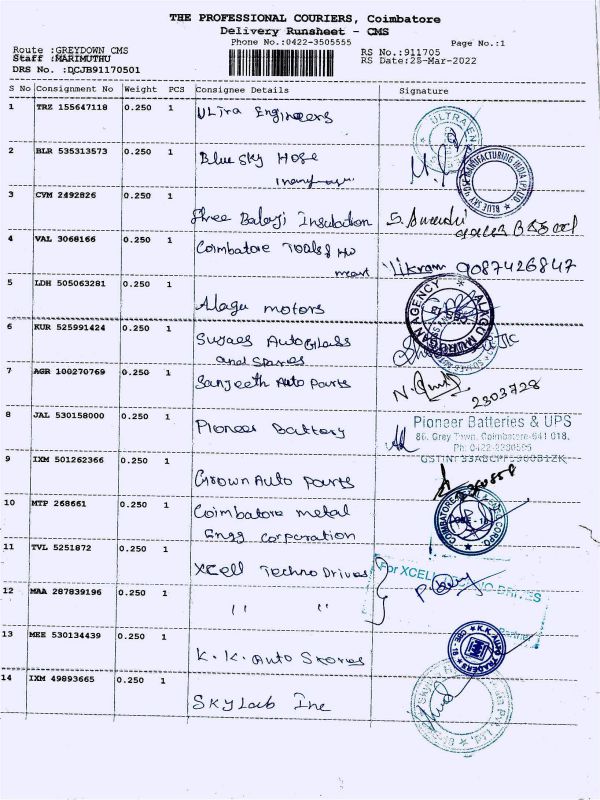 THE PROFESSIONAL COURIERS, Coimbatore
Delivery Runsheet - CMS
Phone No.:0422-3505555
Page No.:1
Route :GREYDOWN CMS
RS No.:911705
Staff :MARIMUTHU
RS Date:25-Mar-2022
DRS No. :DCJB91170501
S No Consignment No Weight PCS Consignee Details Signature
1 TRZ 155647118 0.250 1 Ultra Engineers
ULTRA EN
2 BLR 535313573 0.250 1 Blue Sky Hose
BLUE SKY HOSE MANUFACTURING INDIA (P) LTD
3 CVM 2492826 0.250 1 Shree Balaji Insulation
4 VAL 3068166 0.250 1 Coimbatore Tools & Hd
mart Vikram 9087426847
5 LDH 505063281 0.250 1 Alagu motors
ALAGU MURUGAN AGENCY
6 KUR 525991424 0.250 1 Sujaes Auto Glass
and Spares
7 AGR 100270769 0.250 1 Sanjeeth Auto Parts
2303728
8 JAL 530158000 0.250 1 Pioneer Battery
Pioneer Batteries & UPS
86, Grey Town, Coimbatore-641 018.
Ph: 0422-2230595
9 IXM 501262366 0.250 1 Crown Auto parts
10 MTP 268661 0.250 1 Coimbatore metal
Engg Corporation
11 TVL 5251872 0.250 1 XCell Techno Drives
For XCELL TECHNO DRIVES
12 MAA 287839196 0.250 1 " "
Partner
13 MEE 530134439 0.250 1 K.K. Auto Stores
K.K. AUTO TRADERS CBE-18
14 IXM 49893665 0.250 1 Skylab Inc